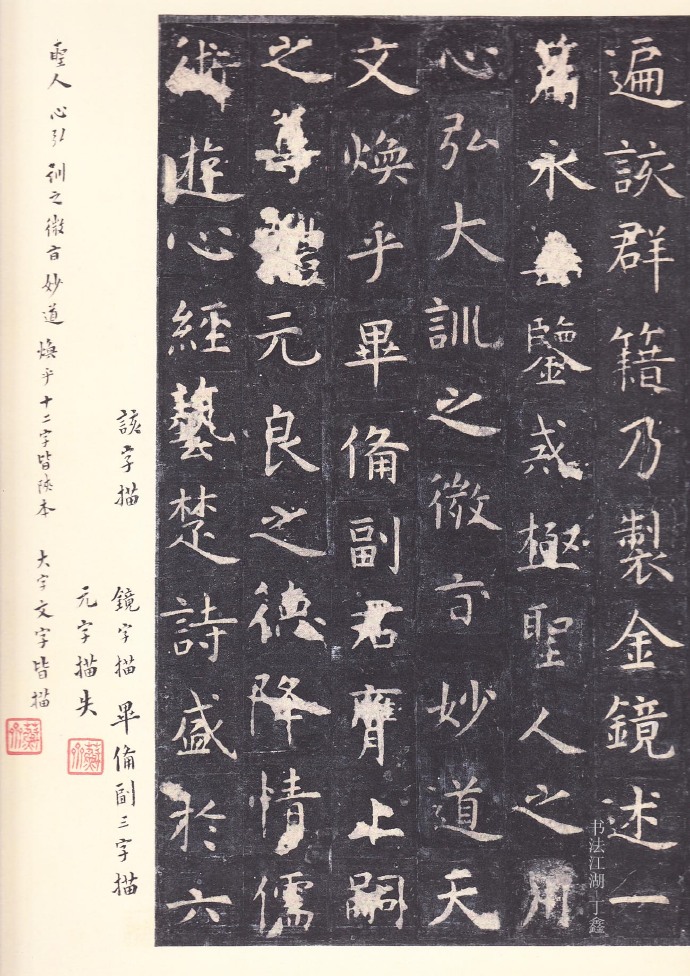 遍該群籍乃製金鏡述一
篇永垂鑒戒極聖人之用
心弘大訓之微旨妙道天
文煥乎畢備副君膺上嗣
之尊體元良之德降情儒
術遊心經藝楚詩盛於六
該字描
鏡字描 畢備副三字描
元字描失
聖人 心弘 訓之微旨妙道 煥乎十二字皆陝本 大字文字皆描
书法江湖 丁鑫